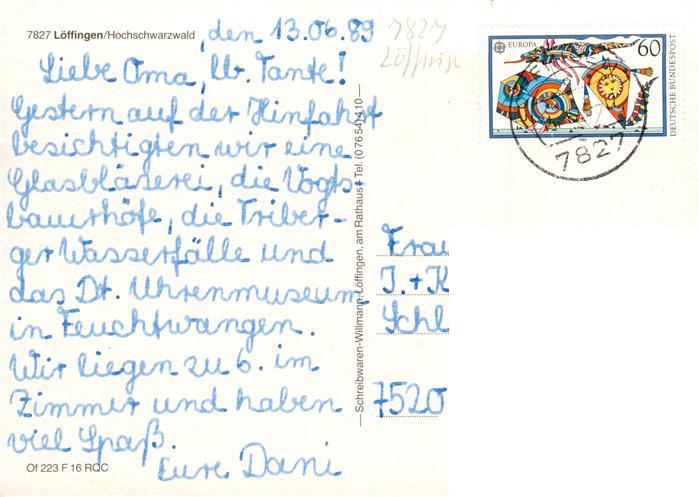 7827 Löffingen/Hochschwarzwald , den 13.06.89
Liebe Oma, lb. Tante!
Gestern auf der Hinfahrt
besichtigten wir eine
Glasbläserei, die Vogts-
bauernhöfe, die Triber-
ger Wasserfälle und
das Dt. Uhrenmuseum
in Feuchtwangen.
Wir liegen zu 6. im
Zimmer und haben
viel Spaß.
Eure Dani
Of 223 F 16 RQC
— Schreibwaren-Willmann, Löffingen, am Rathaus • Tel. (0 76 54) 4 10 —
7827
Löffinge
CEPT EUROPA 60
DEUTSCHE BUNDESPOST
7827
Frau
I. + K
Schl
7520